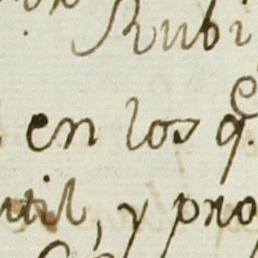 Rubi
en los q.e
util, y pro